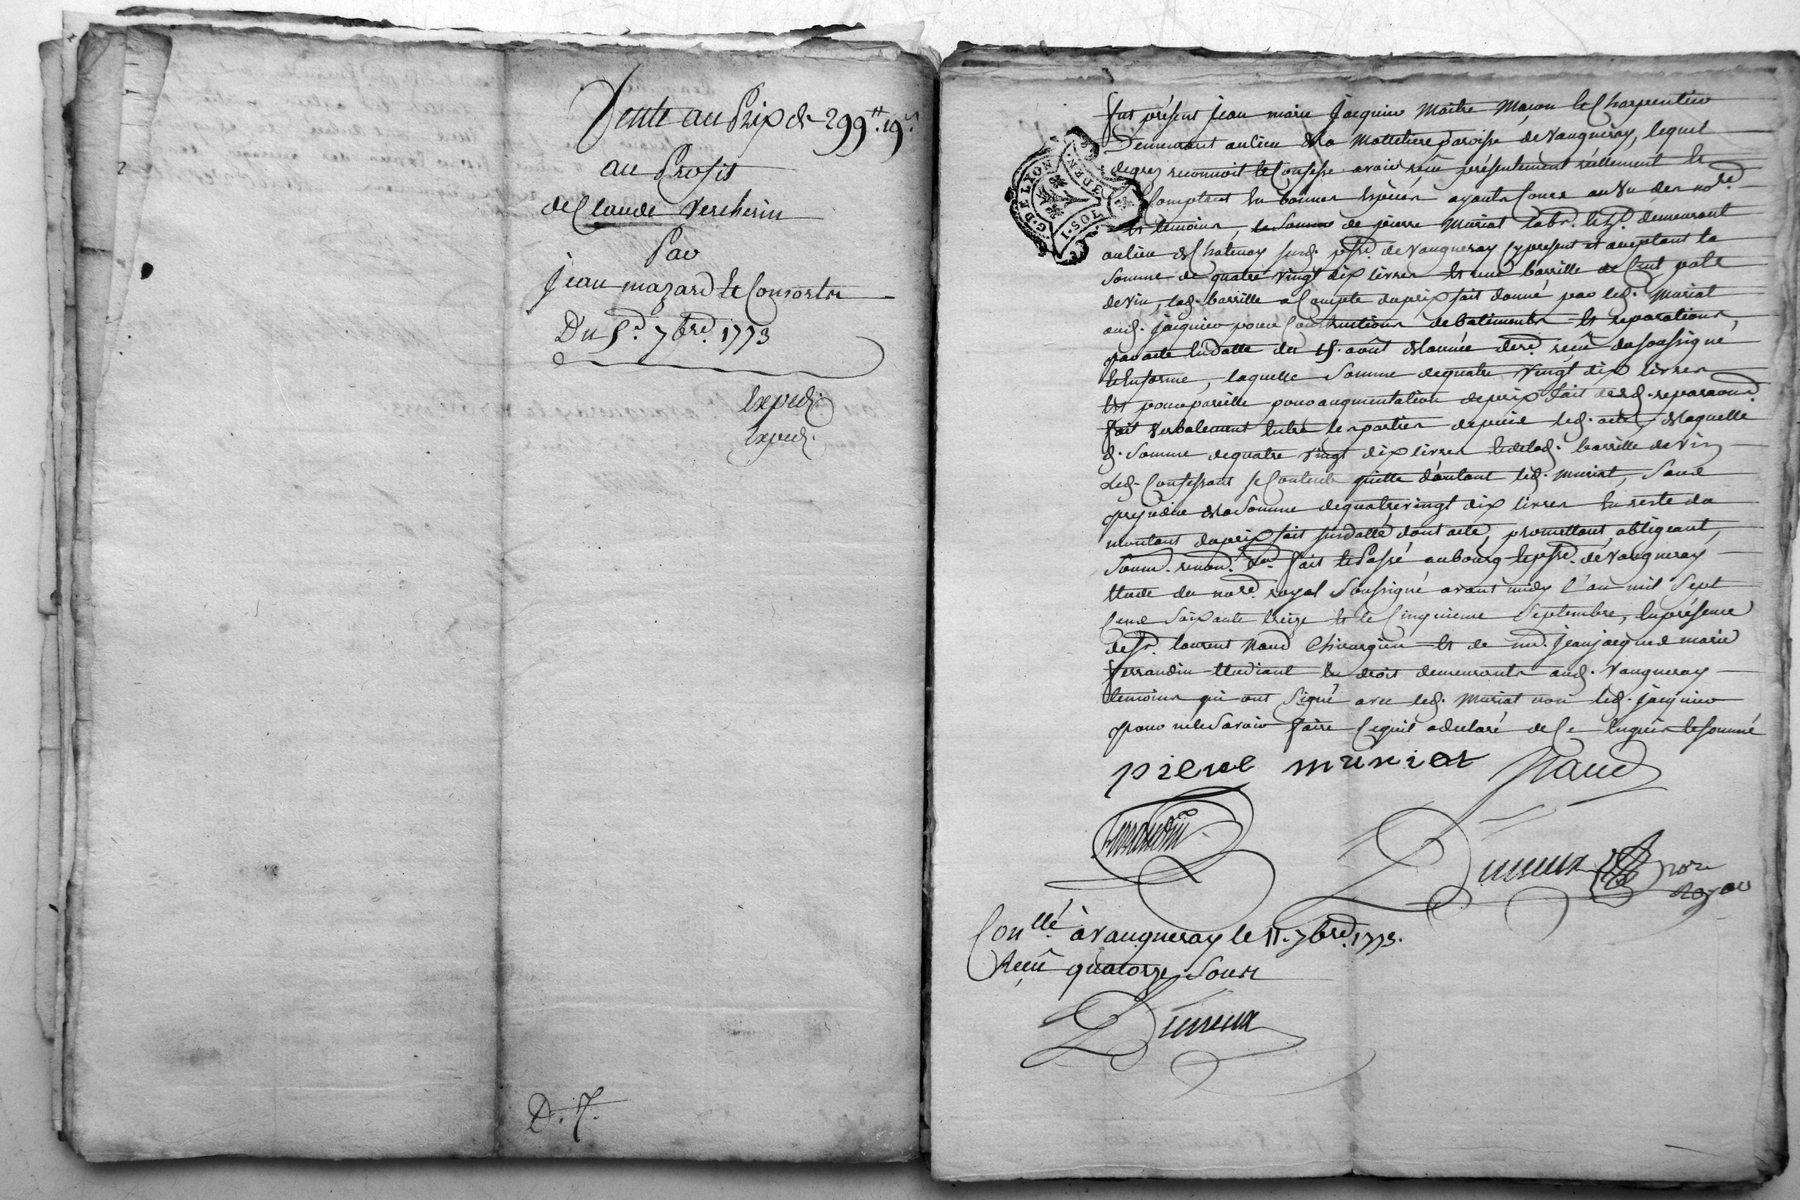 Vente au Prix de 299tt. 19s.
au Profit
de Claude Vercherin
Par
Jean mazard et Consorts
Du 5d. 7bre. 1773
Expedi.
Expedi.
D. J.
fut présent jean marie jacquier Maitre Maçon et Charpentier
Demeurant au lieu de la Matteliere paroisse de Vaugneray, lequel
de gré reconnoit et Confesse avoir reçu présentement réellement et
Comptant en bonnes Espèces ayants Cours au Vu des nore.
et temoins, de pierre Muriat labr. demeurant
au lieu de Chatenay susd. psse. de Vaugneray Cy present et aceptant la
Somme de quatre vingt dix livres et une barrille de Cent pots
de vin, lad. barrille a Compte du prix fait donné par led. Muriat
aud. jacquier pour Constructions de batiments et reparations,
par acte en datte du 15. août de l'année dere. reçu du soussigné
en forme, laquelle Somme de quatre vingt dix livres
est pour pareille pour augmentation de prix fait desd. reparaons.
fait verbalement entre les parties depuis led. acte, de laquelle
d. Somme de quatre vingt dix livres et de lad. barrille de vin
Led. Confessant se Contente quitte d'autant led. muriat, Sans
prejudice de la Somme de quatre vingt dix livres en reste du
montant du prix fait susdatté, dont acte, promettant, obligeant,
Soum. renon. &a. fait et Passé au bourg et psse. de Vaugneray
Etude du nore. royal Soussigné avant midy l'an mil Sept
Cent Soixante treize et le Cinquieme Septembre, en présence
de Sr. laurent Naud Chirurgien et de me. jean jacques marie
ferrandin Etudiant en droit demeurants aud. Vaugneray
temoins qui ont Signé avec led. Muriat non led. jacquier
pour ne le Savoir faire Ce qu'il a declaré de Ce Enquis et Sommé
pierre muriat Naud
ferrandin
Dureux nore
Royal
G. DE LYON
1. SOL
2. DEN.
Conllé. à Vaugneray le 11. 7bre. 1773.
Reçu quatorze Sous
Dureux